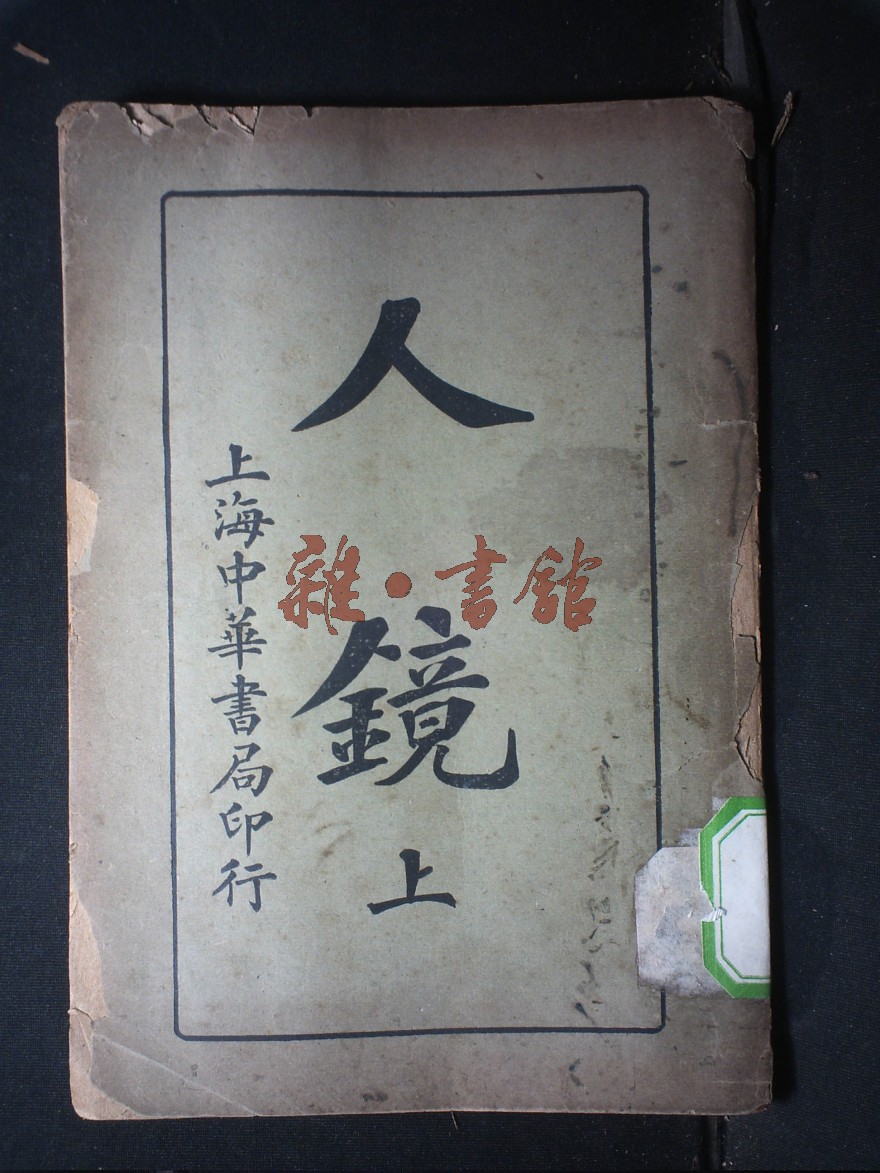 人鏡
上
上海中華書局印行
雜·書館